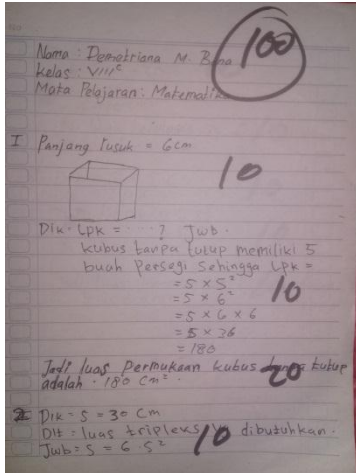 Nama : Demetriana M. B
Kelas : VIII C
Mata Pelajaran : Matematik
100
I Panjang rusuk = 6 cm
10
Dik. Lpk = ....? Jwb.
kubus tanpa tutup memiliki 5
buah persegi sehingga Lpk =
= 5 × 5²
= 5 × 6²
10
= 5 × 6 × 6
= 5 × 36
= 180
Jadi luas permukaan kubus tanpa tutup
20
adalah . 180 cm².
2 Dik = s = 30 cm
Dit = luas tripleks yg dibutuhkan.
10
Jwb = s = 6 . s²